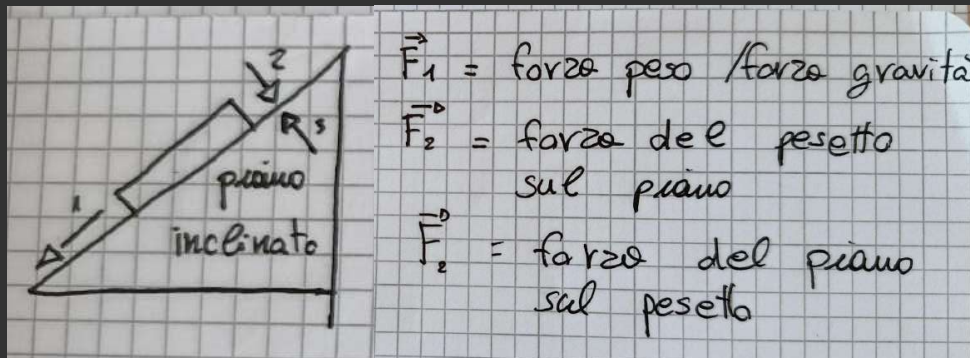 2
3
1
piano
inclinato
F₁ = forza peso / forza gravità
F₂ = forza del pesetto
sul piano
F₂ = forza del piano
sul pesetto